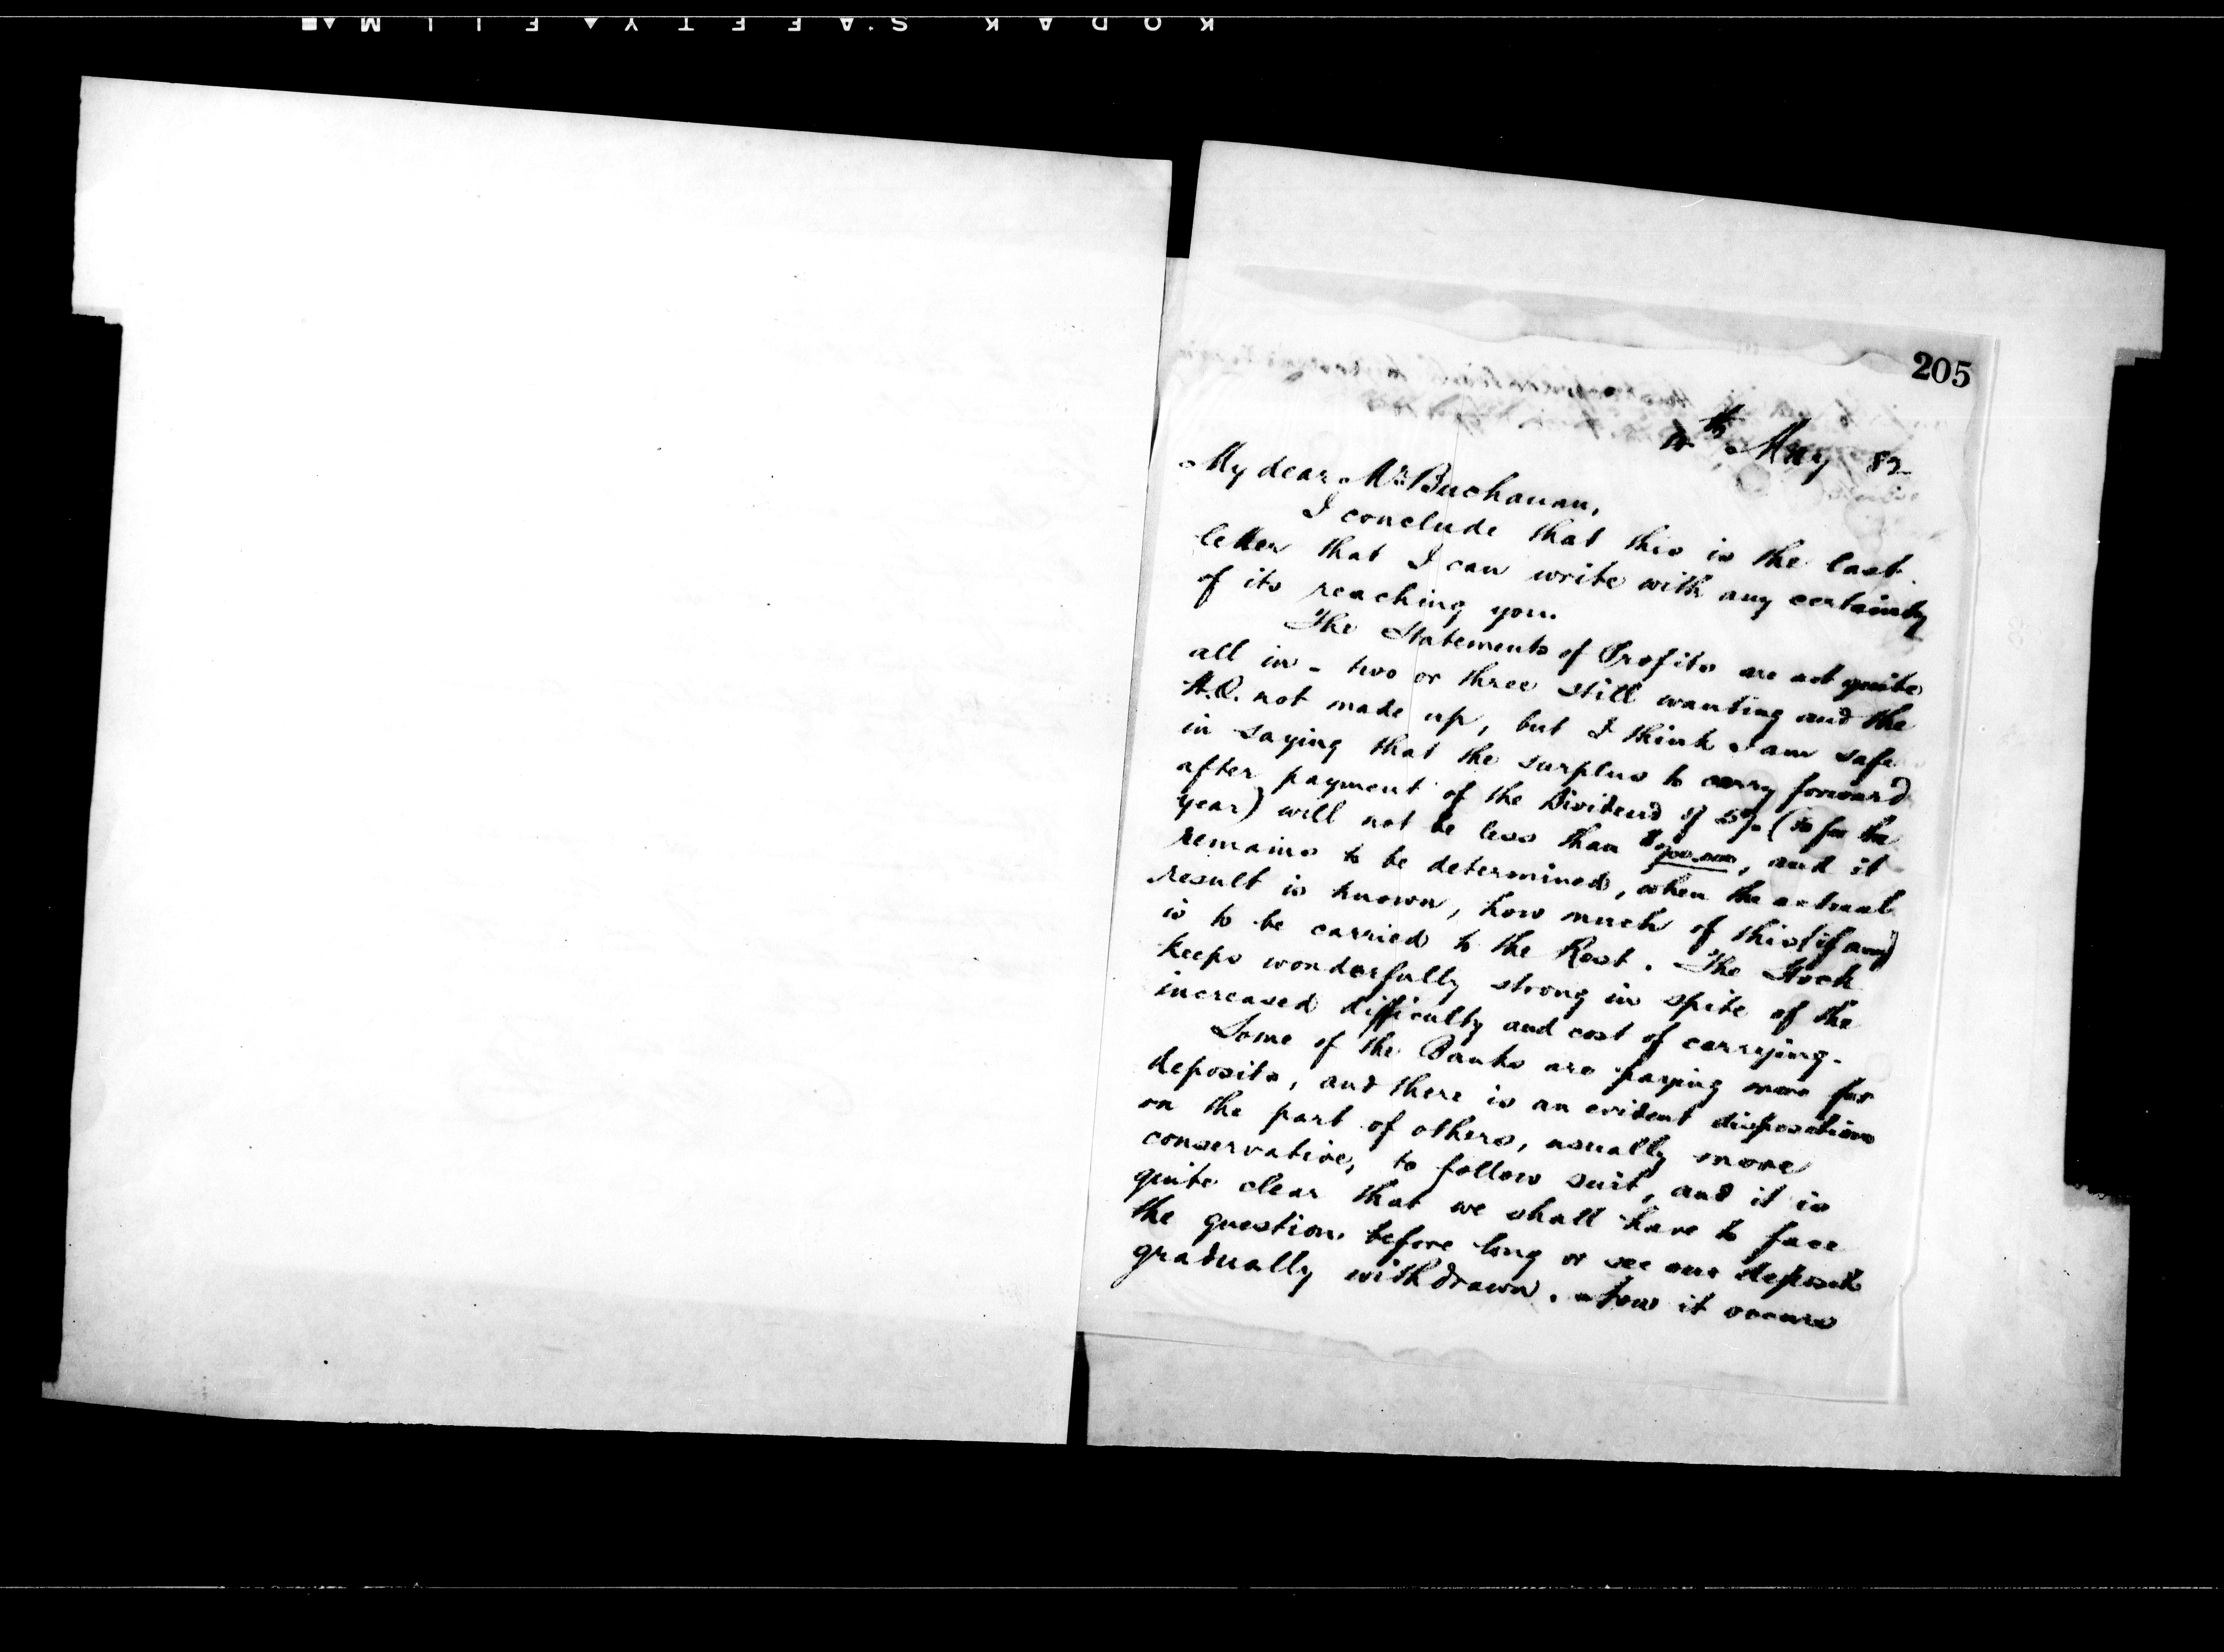 KODAK SAFETY FILM
205
May 82
My dear Mr Buchanan,
I conclude that this is the last
letter that I can write with any certainty
of its reaching you.
The Statements of Profits are not quite
all in - two or three still wanting and the
H.O. not made up, but I think I am safe
in saying that the surplus to carry forward
after payment of the Dividend of 5% ( for the
year) will not be less than , and it
remains to be determined, when the actual
result is known, how much of this (if any)
is to be carried to the Rest. The Stock
keeps wonderfully strong in spite of the
increased difficulty and cost of carrying.
Some of the Banks are paying more for
deposits, and there is an evident disposition
on the part of others, usually more
conservative, to follow suit, and it is
quite clear that we shall have to face
the question before long or see our deposits
gradually withdrawn. Now it occurs